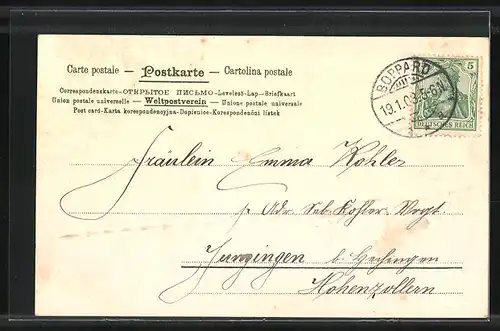 Carte postale — Postkarte — Cartolina postale
Correspondenzkarte-ОТКРЫТОЕ ПИСЬМО-Levelező-Lap-Briefkaart
Union postale universelle — Weltpostverein — Unione postale universale
Post card-Karta korespondencyjna-Dopisnice-Korespondenční listek
BOPPARD
19.1.0
5
DEUTSCHES REICH
Fräulein Emma Kohler
p. Adr. Seb. Kohler Vogt.
Jungingen b. Hechingen
Hohenzollern